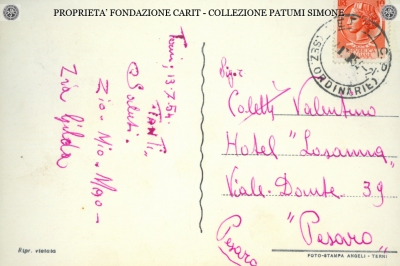 PROPRIETA' FONDAZIONE CARIT - COLLEZIONE PATUMI SIMONE
Terni, 13-7-54.
TANTI
Saluti.
Zio - Mio - Mao -
Zia Gilda
Sig.r
Coletti Valentino
Hotel "Losanna"
Viale Dante 39
"Pesaro"
Pesaro
ORDINARIE
Ripr. vietata
FOTO-STAMPA ANGELI - TERNI